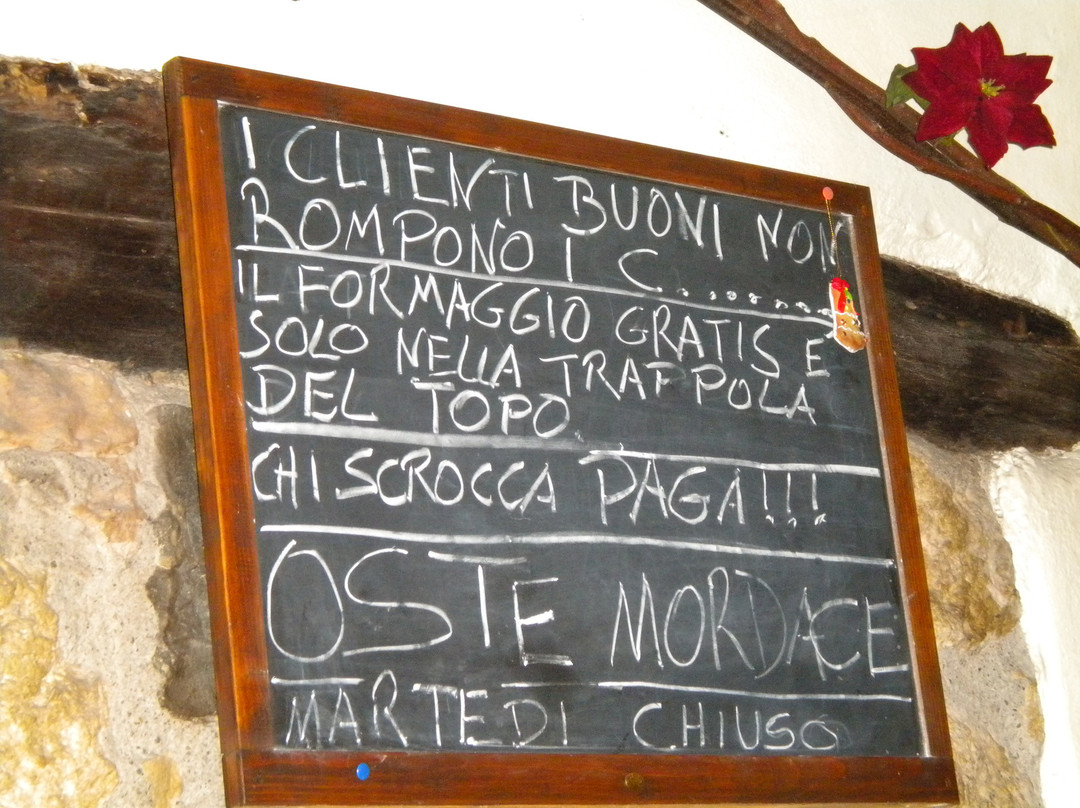 I CLIENTI BUONI NON
ROMPONO I C........
IL FORMAGGIO GRATIS E'
SOLO NELLA TRAPPOLA
DEL TOPO
CHI SCROCCA PAGA!!!
OSTE MORDACE
MARTEDI CHIUSO